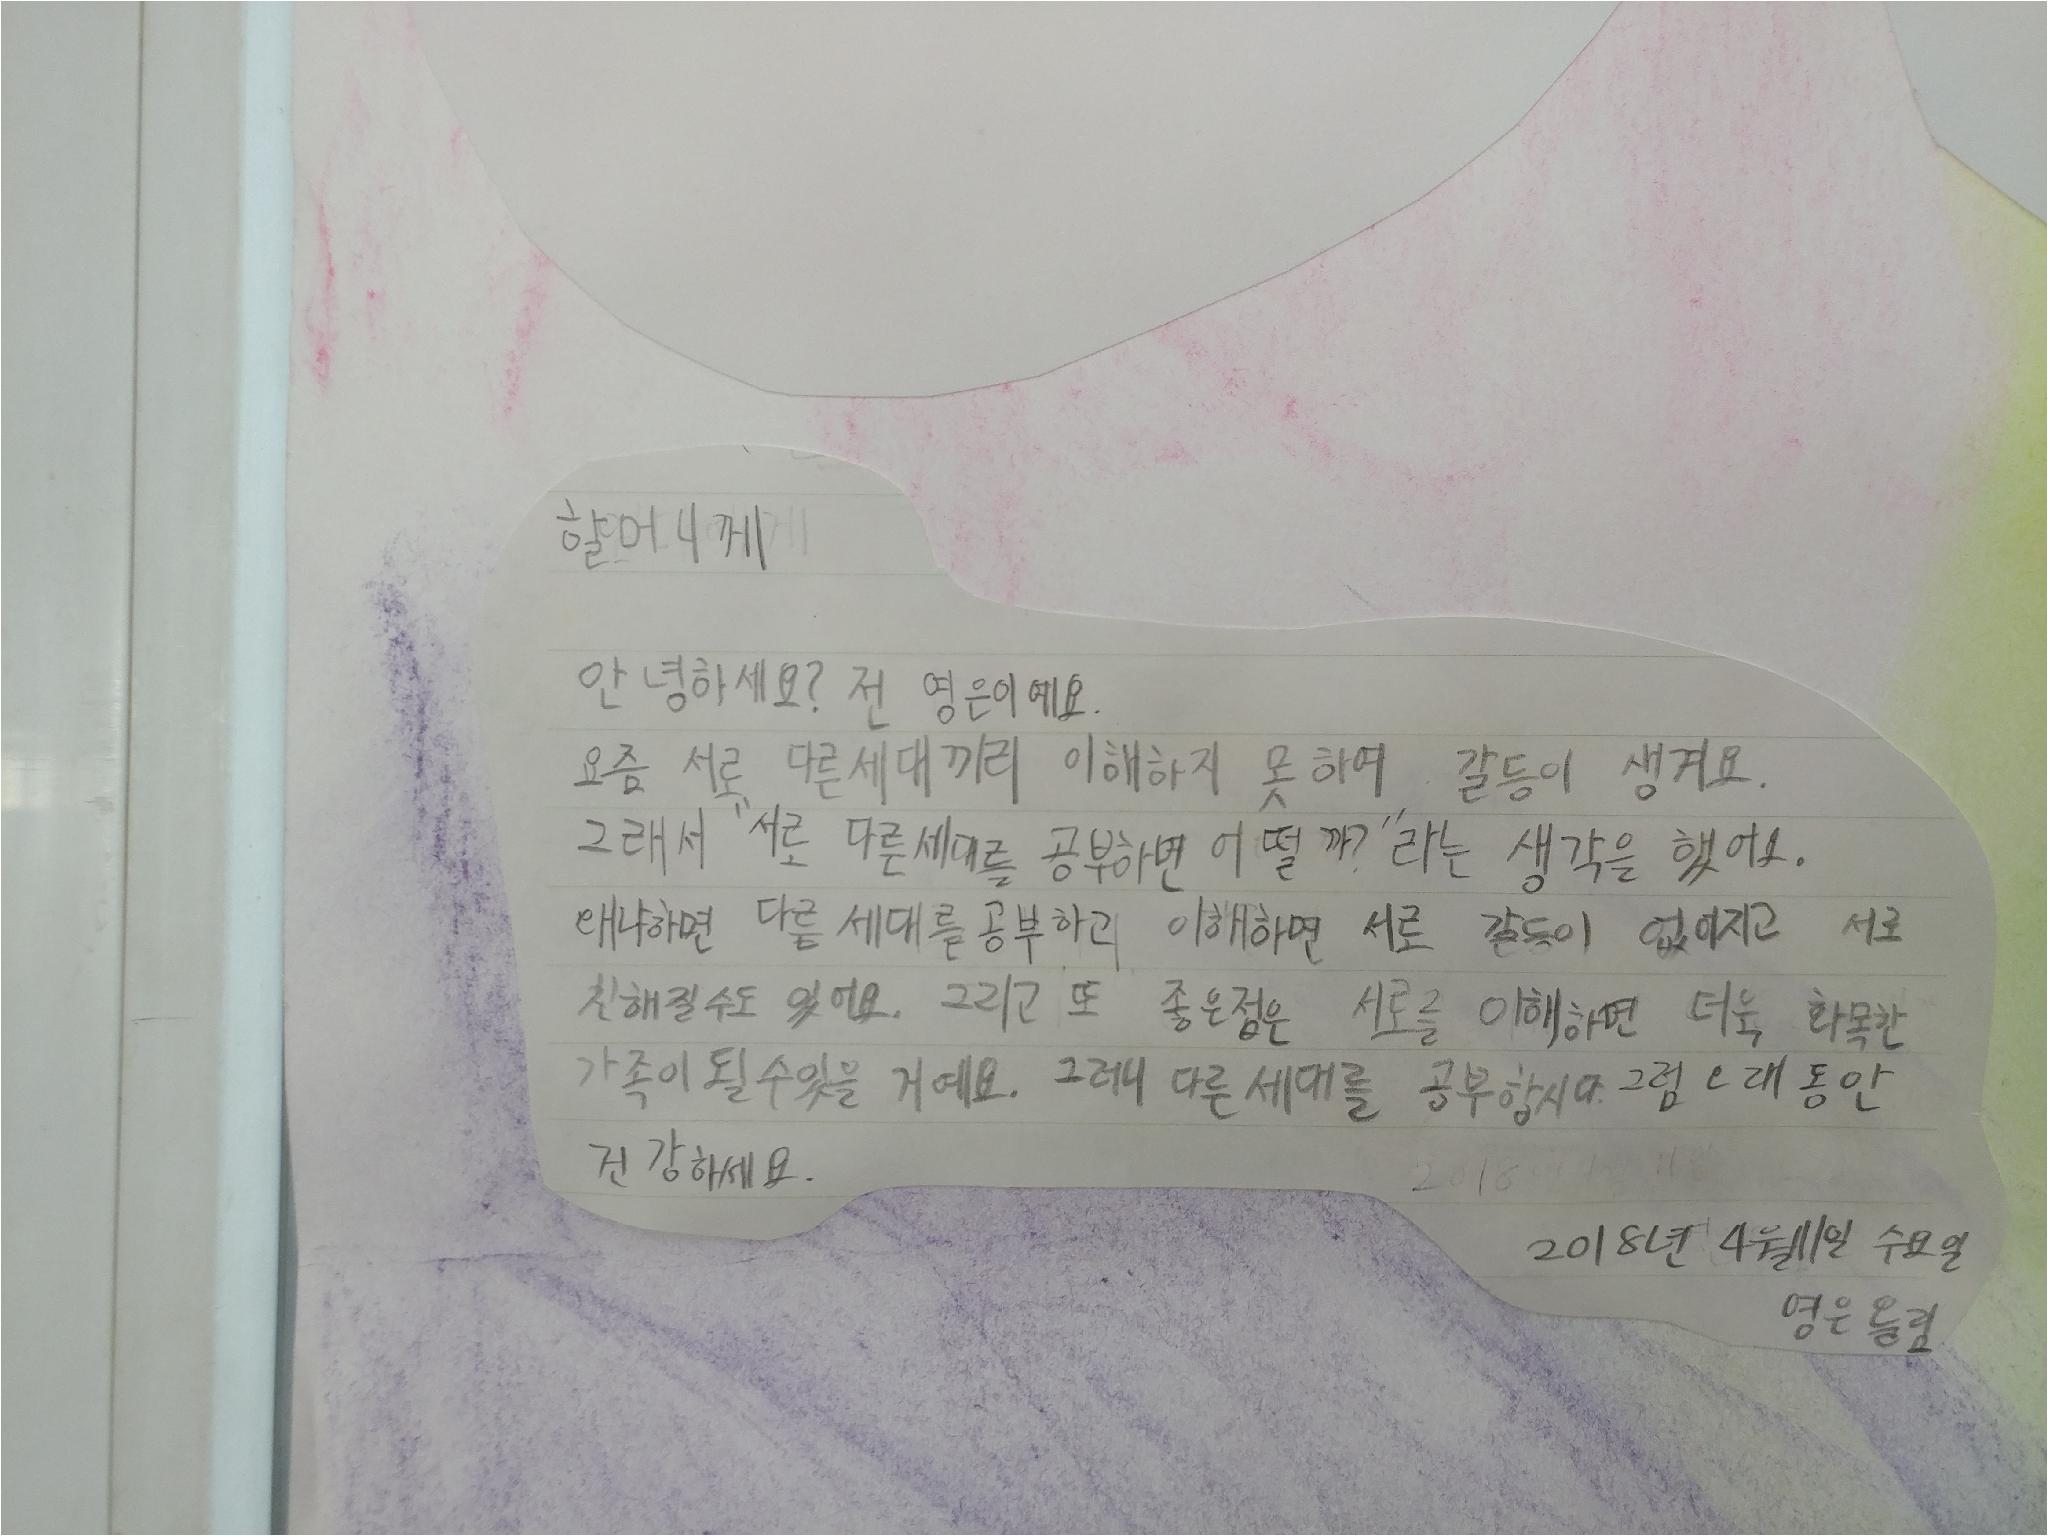 할머니께
안녕하세요? 전 영은이예요.
요즘 서로 다른세대끼리 이해하지 못하여 갈등이 생겨요.
그래서 "서로 다른세대를 공부하면 어떨까?"라는 생각을 했어요.
왜냐하면 다른세대를공부하고 이해하면 서로 갈등이 없어지고 서로
친해질수도 있어요. 그리고 또 좋은점은 서로를 이해하면 더욱 화목한
가족이 될수있을 거예요. 그러니 다른세대를 공부합시다. 그럼 오래동안
건강하세요.
2018년 4월11일 수요일
영은올림